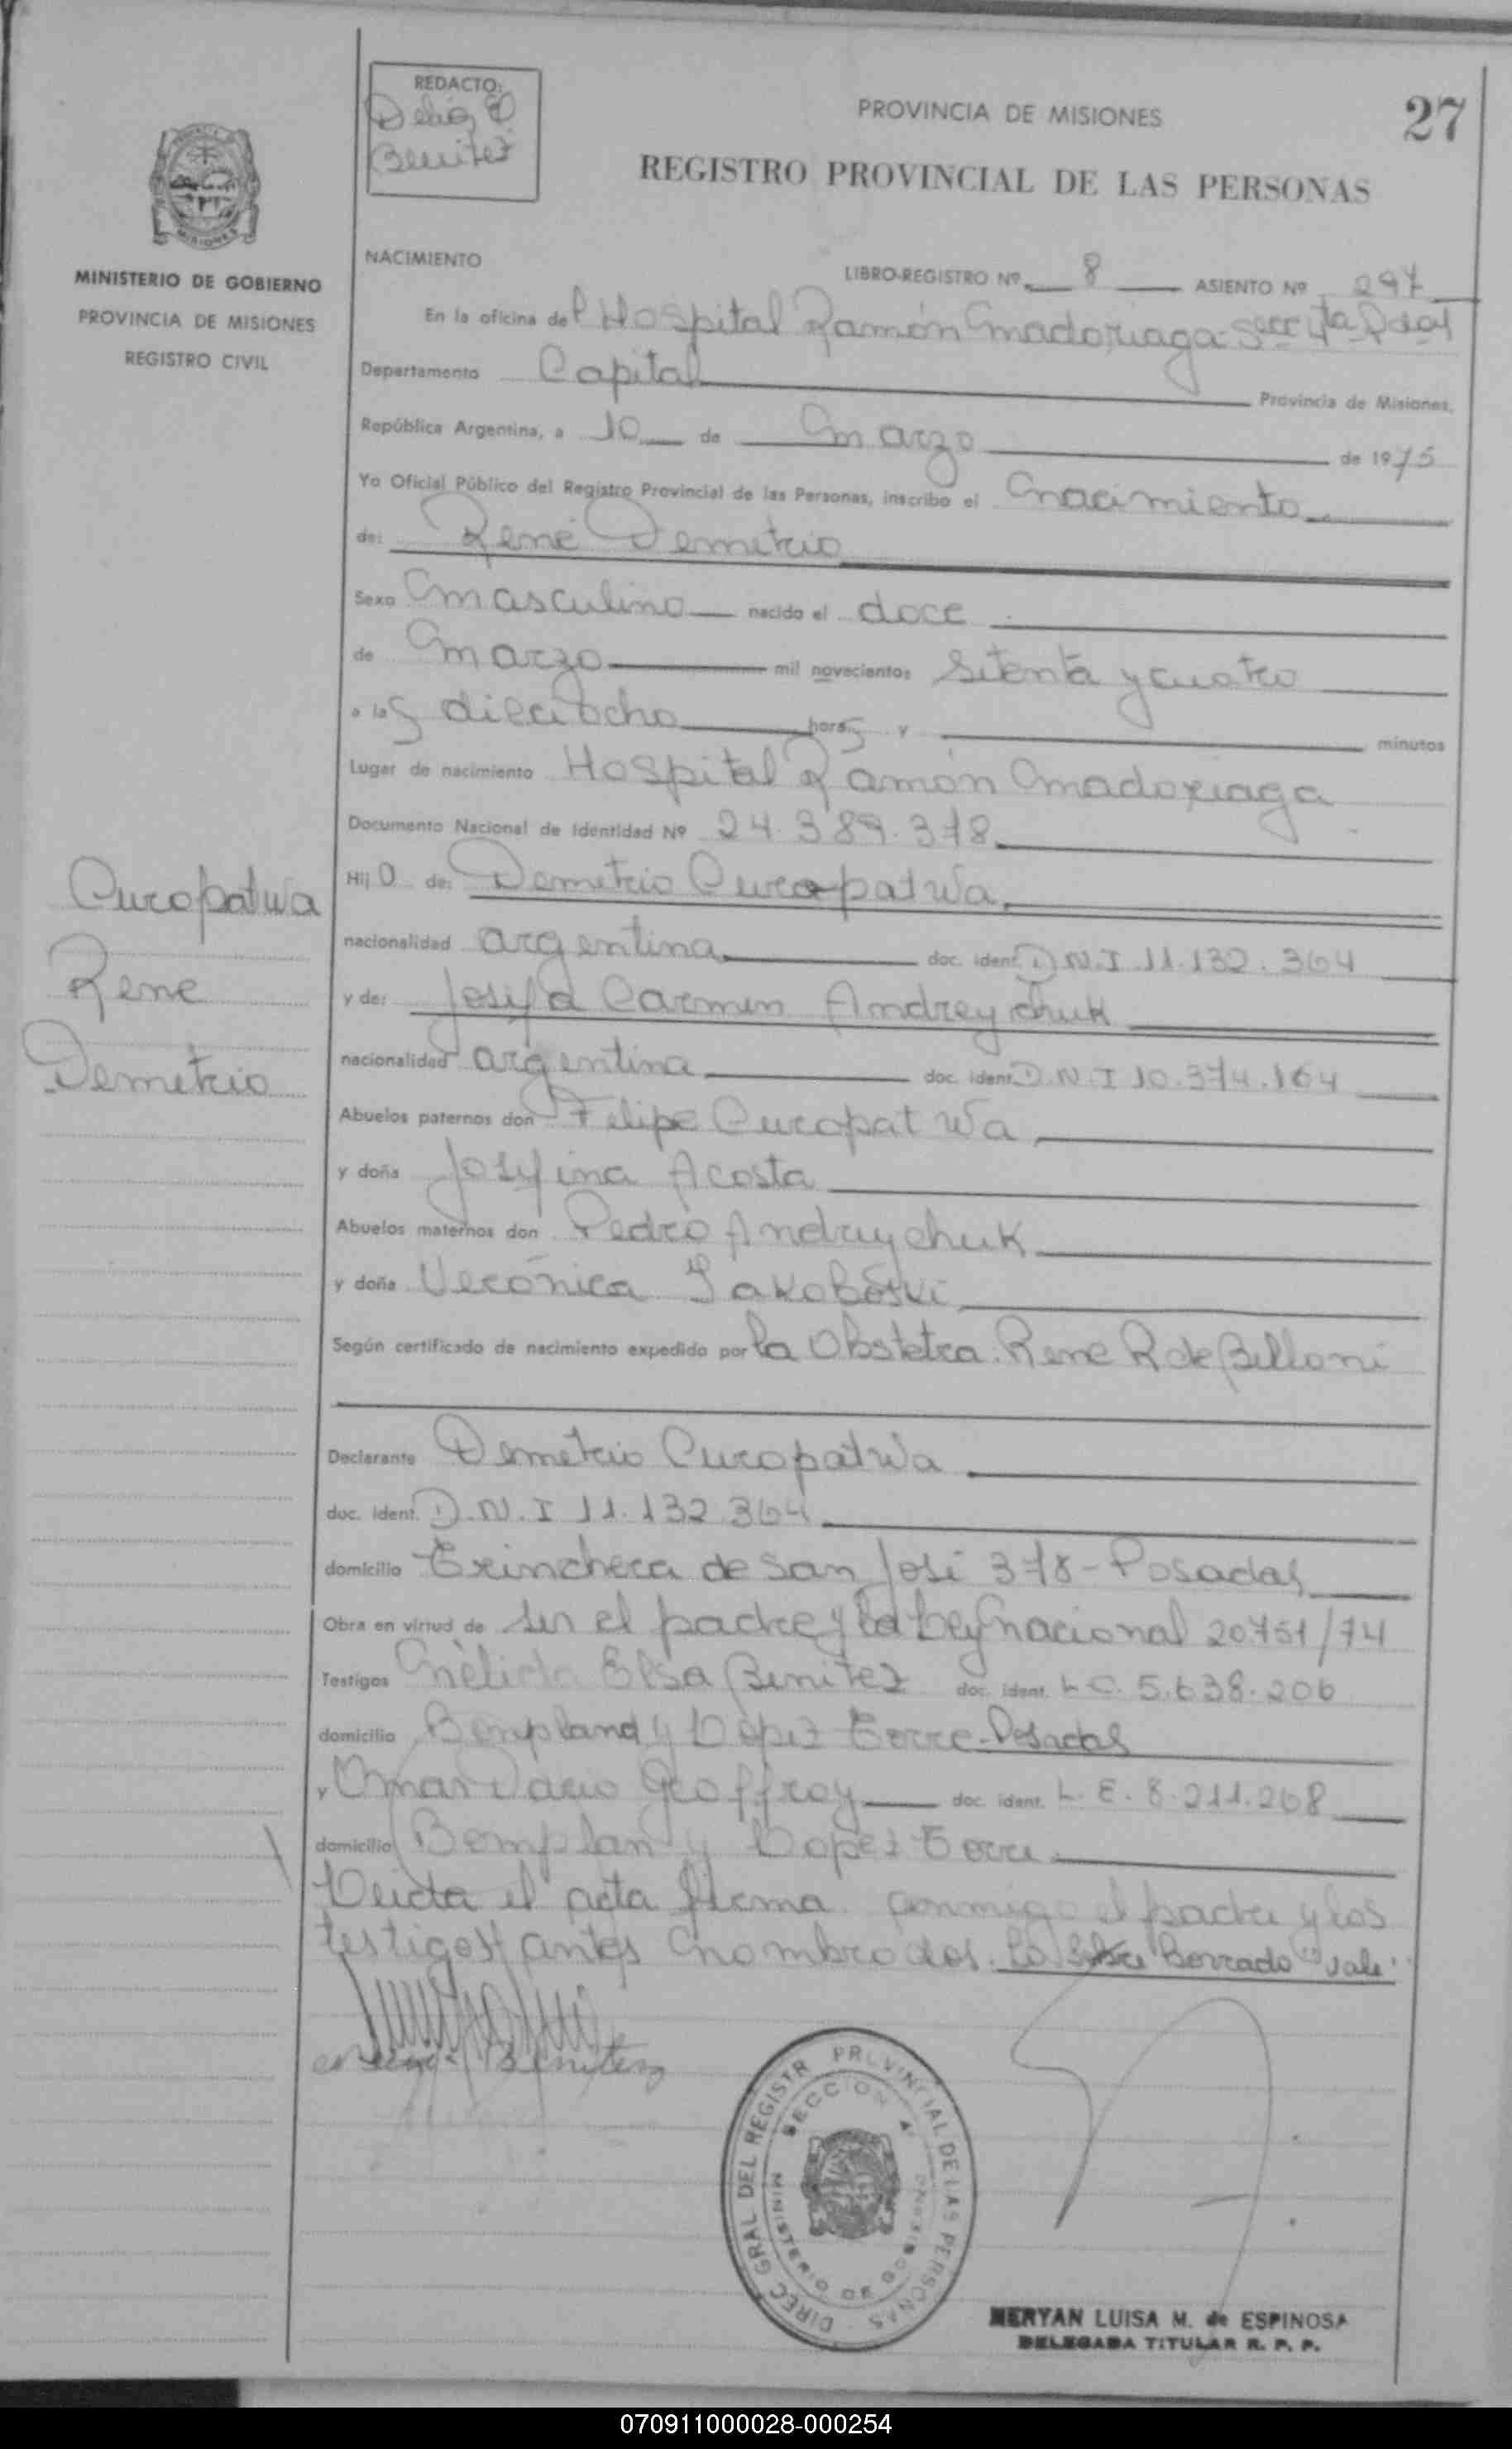 REDACTO:
Delia E
Benitez
PROVINCIA DE MISIONES
27
REGISTRO PROVINCIAL DE LAS PERSONAS
MISIONES
MINISTERIO DE GOBIERNO
PROVINCIA DE MISIONES
REGISTRO CIVIL
NACIMIENTO
LIBRO-REGISTRO Nº 8 ASIENTO Nº 297
En la oficina del Hospital Ramón Madariaga Secc 4ta Pdas
Departamento Capital Provincia de Misiones,
República Argentina, a 10 de Marzo de 1975
Yo Oficial Público del Registro Provincial de las Personas, inscribo el nacimiento
de: René Demetrio
Sexo Masculino nacido el doce
de Marzo mil novecientos Setenta y cuatro
a las dieciocho horas y minutos
Lugar de nacimiento Hospital Ramón Madariaga
Documento Nacional de Identidad Nº 24.389.378
Hijo de: Demetrio Curopatwa
nacionalidad argentina doc. ident. D.N.I 11.132.364
y de: Josefa Carmen Andreychuk
nacionalidad argentina doc. ident. D.N.I 10.374.164
Abuelos paternos don Felipe Curopatwa
y doña Josefina Acosta
Abuelos maternos don Pedro Andreychuk
y doña Verónica Jakoboski
Según certificado de nacimiento expedido por la Obstetra. Rene R de Belloni
Declarante Demetrio Curopatwa
doc. ident. D.N.I 11.132.364
domicilio Trinchera de San José 378 - Posadas
Obra en virtud de ser el padre y la Ley Nacional 20.751/74
Testigos Nélida Elsa Benitez doc. ident. L C. 5.638.206
domicilio Bonpland y López Torre - Posadas
y Omar Dario Geoffroy doc. ident. L. E. 8.211.268
domicilio Bomplan y Lopez Torre
Leida el acta firma conmigo el padre y los
testigos antes nombrados. Lo Sobre Borrado "vale"
Curopatwa
Rene
Demetrio
Benitez
DIREC GRAL DEL REGISTR PROVINCIAL DE LAS PERSONAS
SECCION 4ª
MINISTERIO DE GOBIERNO
MERYAN LUISA M. de ESPINOSA
DELEGADA TITULAR R. P. P.
070911000028-000254